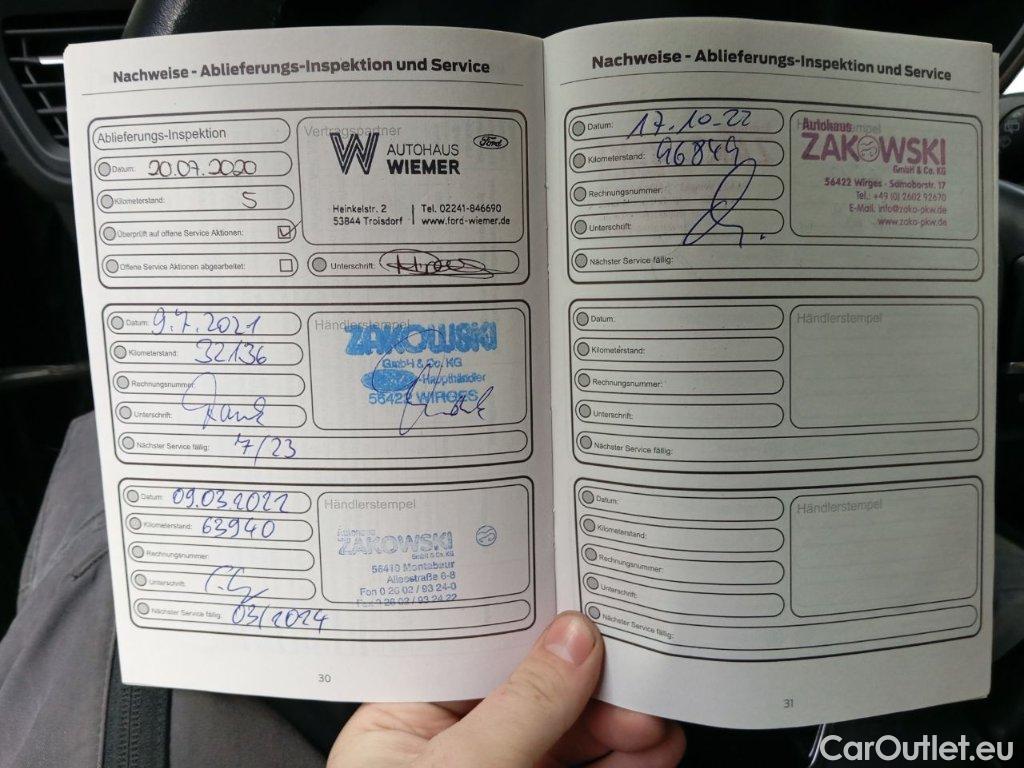 Nachweise - Ablieferungs-Inspektion und Service
Ablieferungs-Inspektion
Datum: 20.07.2020
Kilometerstand: 5
Überprüft auf offene Service Aktionen:
Offene Service Aktionen abgearbeitet:
Vertragspartner
W AUTOHAUS WIEMER
Ford
Heinkelstr. 2 | Tel. 02241-846690
53844 Troisdorf | www.ford-wiemer.de
Unterschrift:
Datum: 9.7.2021
Kilometerstand: 32136
Rechnungsnummer:
Unterschrift:
Nächster Service fällig: 7/23
Händlerstempel
ZAKOWSKI
GmbH & Co. KG
Ford -Haupthändler
56422 WIRGES
Datum: 09.03.2022
Kilometerstand: 63940
Rechnungsnummer:
Unterschrift:
Nächster Service fällig: 03/2024
Händlerstempel
Autohaus
ZAKOWSKI
GmbH & Co. KG
56410 Montabaur
Alleestraße 6-8
Fon 0 26 02 / 93 24-0
Fax 0 26 02 / 93 24 22
30
Nachweise - Ablieferungs-Inspektion und Service
Datum: 17.10.22
Kilometerstand: 96849
Rechnungsnummer:
Unterschrift:
Nächster Service fällig:
Autohaus
ZAKOWSKI
GmbH & Co. KG
56422 Wirges - Samoborstr. 17
Tel.: +49 (0) 2602 92670
E-Mail. info@zako-pkw.de
www.zako-pkw.de
Datum:
Kilometerstand:
Rechnungsnummer:
Unterschrift:
Nächster Service fällig:
Händlerstempel
Datum:
Kilometerstand:
Rechnungsnummer:
Unterschrift:
Nächster Service fällig:
Händlerstempel
31
CarOutlet.eu